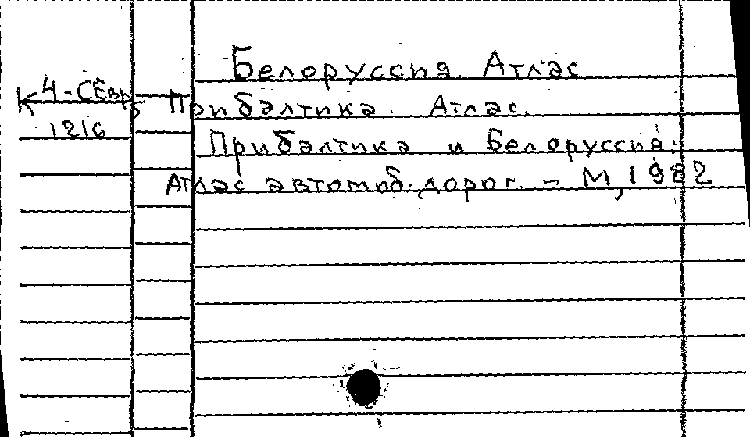 Белоруссия. Атлас
К 4-Севр
1216
Прибалтика. Атлас.
Прибалтика и Белоруссия:
Атлас автомоб. дорог. – М, 1982